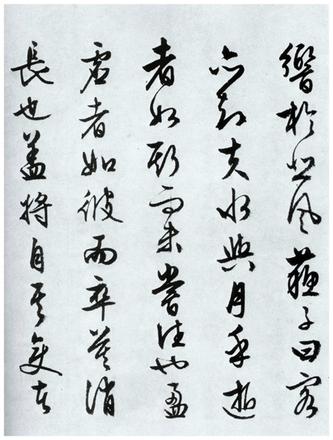 響於悲風蘇子曰客
亦知夫水與月乎逝
者如斯而未嘗往也盈
虛者如彼而卒莫消
長也蓋將自其變者